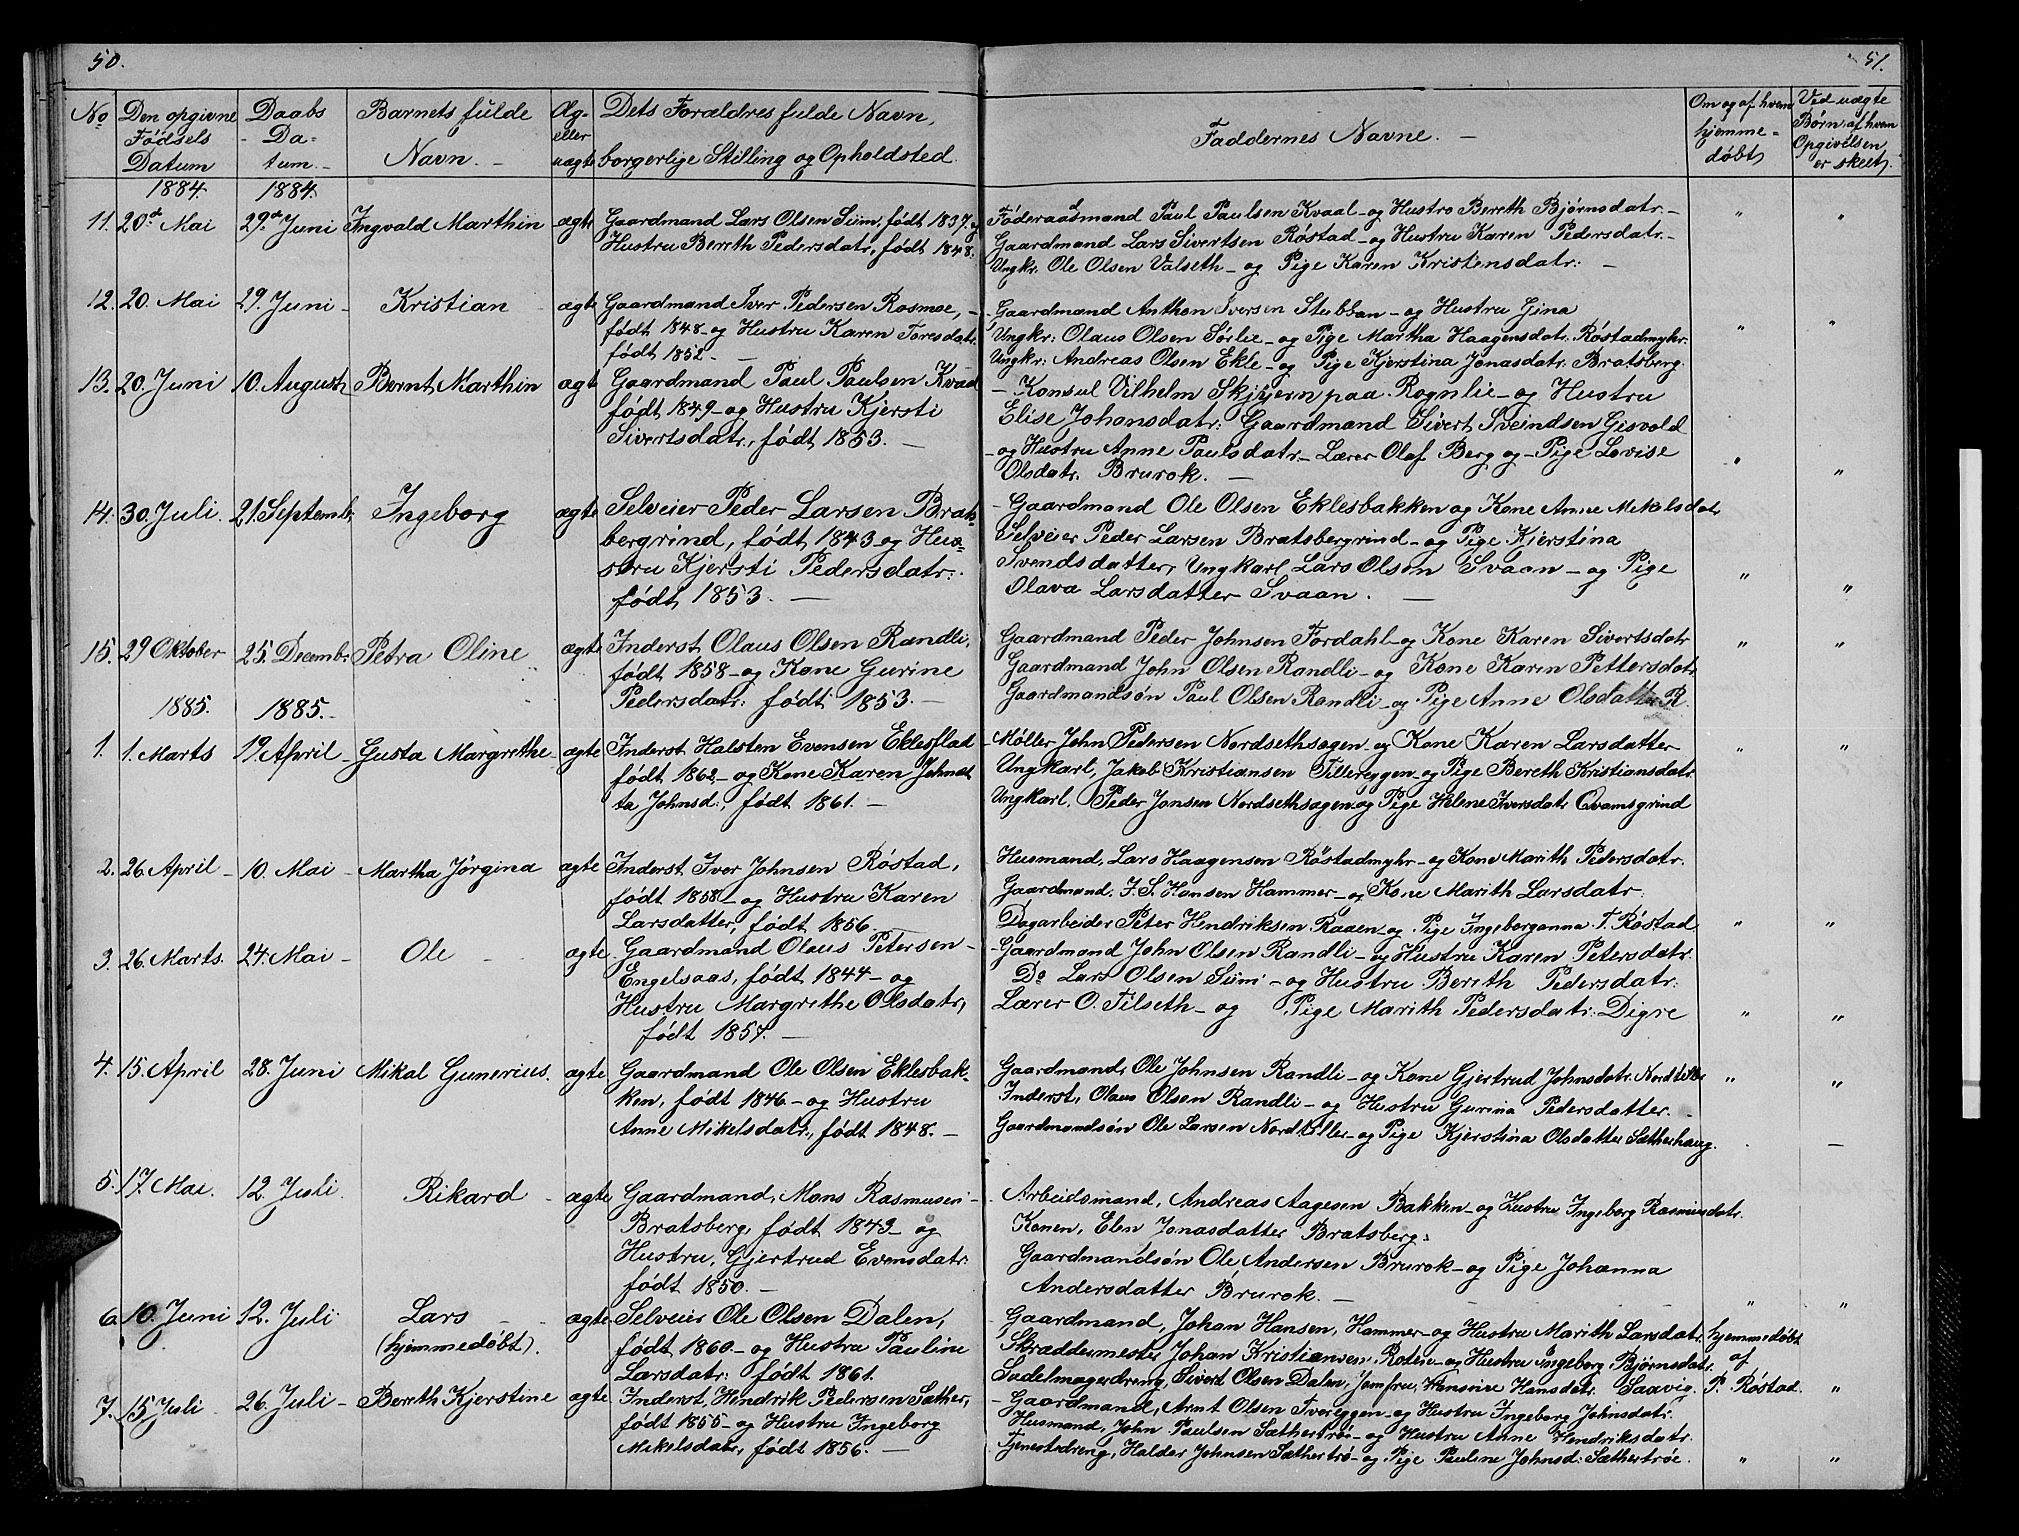 50.
No Den opgivne Fødsels Datum Daabs Datum Barnets fulde Navn. Æg- eller uægte Dets Forældres fulde Navn, borgerlige Stilling og Opholdsted.
1884. 1884.
11. 20de Mai 29de Juni Ingvald Marthin ægte Gaardmand Lars Olsen Siim, født 1837 og
Hustru Bereth Pedersdatr, født 1848.
12. 20. Mai 29. Juni Kristian ægte Gaardmand Iver Pedersen Rosmoe,
født 1848 og Hustru Karen Toresdatr
født 1852.
13. 20. Juni 10. August Bernt Marthin ægte Gaardmand Paul Paulsen Kvaal
født 1849 og Hustru Kjersti
Sivertsdatr, født 1853.
14. 30. Juli 21. Septemb. Ingeborg ægte Selveier Peder Larsen Brat-
bergrind, født 1843 og Hus-
stru Kjersti Pedersdatr:
født 1853.
15. 29 Oktober 25. Decembr Petra Oline ægte Inderst Olaus Olsen Randli,
født 1858 og Kone Gurine
Pedersdatr: født 1853.
1885. 1885.
1. 1. Marts 19. April Gusta Margrethe ægte Inderst Halsten Evensen Eklesflad
født 1862 og Kone Karen Johnet
ta Johnsd:, født 1861.
2. 26. April 10. Mai Martha Jørgina ægte Inderst Iver Johnsen Røstad,
født 1858 og Hustru Karen
Larsdatter, født 1856
3. 26. Marts. 24. Mai Ole ægte Gaardmand Olaus Petersen
Engelsaas, født 1844 og
Hustru Margrethe Olsdatr,
født 1854.
4. 15. April 28. Juni Mikal Gunerius. ægte Gaardmand Ole Olsen Eklesbak-
ken, født 1846 og Hustru
Anne Mikelsdatr, født 1848.
5. 17. Mai. 12. Juli. Rikard ægte Gaardmand, Mons Rasmusen
Bratsberg, født 1849 og
Hustru, Gjertrud Evensdatr:
født 1850.
6. 10. Juni 12. Juli Lars ægte Selveier Ole Olsen Dalen,
(hjemmedøbt). født 1860 og Hustru Pauline
Larsdatr: født 1861.
7. 15 Juli 26. Juli Bereth Kjerstine ægte Inderst, Hendrik Pedersen Sæther,
født 1855 og Hustru Ingeborg
Mikelsdatr, født 1856.
51.
Faddernes Navne. Om og af hvem hjemme- døbt Ved uægte Børn, af hvem Opgivelsen er skeet.
Føderaadmand Paul Paulsen Kvaal og Hustro Bereth Bjørnsdatr. " "
Gaardmand Lars Sivertsen Røstad og Hustru Karen Pedersdatr.
Ungkr: Ole Olsen Valseth og Pige Karen Kristensdatr:
Gaardmand Anthon Iversen Stubban og Hustru Gina
Ungkr: Olaus Olsen Sørlie og Pige Martha Haagensdatr. Røstadmyhr. " "
Ungkr: Andreas Olsen Ekle og Pige Kjerstina Jonasdatr. Bratsberg.
Konsul Vilhelm Skjijern paa Rognlie og Hustru
Elise Johansdatr: Gaardmand Sivert Sveindsen Gisvold
og Hustru Anne Paulsdatr. Lærer Olaf Berg og Pige Lovise
Olsdatr. Brurok. " "
Gaardmand Ole Olsen Eklesbakken og Kone Anne Mikelsdat
Selveier Peder Larsen Bratsbergrind og Pige Kjerstina
Svendsdatter, Ungkarl Lars Olsen Svaan og Pige
Olava Larsdatter Svaan. " "
Gaardmand Peder Johnsen Fordahl og Kone Karen Sivertsdatr " "
Gaardmand John Olsen Randli og Kone Karen Pettersdatr.
Gaardmandsøn Paul Olsen Randli og Pige Anne Olsdatter R.
Møller John Pedersen Nordsethsagen og Kone Karen Larsdatter " "
Ungkarl, Jakob Kristiansen Tillereggen og Pige Bereth Kristiansdatr
Ungkarl. Peder Jonsen Nordsethsagen og Pige Helene Iversdatr Qvamsgrind
Husmand, Lars Haagensen Røstadmyhr og Kone Marith Pedersdatr.
Gaardmand. J. S. Hansen Hammer og Kone Marith Larsdatr.
Dagarbeider Peter Hendriksen Raaen og Pige Ingeborganna T. Røstad " "
Gaardmand John Olsen Randli og Hustru Karen Petersdatr.
Do Lars Olsen Siim og Hustru Bereth Pedersdatr:
Lærer O. Tilseth og Pige Marith Pedersdatr. Digre " "
Gaardmand, Ole Johnsen Randli og Kone Gjertrud Johnsdatr. Nordtiller " "
Inderst, Olaus Olsen Randli og Hustru Gurina Pedersdatter.
Gaardmandsøn Ole Larsen Nordtiller og Pige Kjerstina Olsdatter Sætherhaug.
Arbeidsmand, Andreas Aagesen Bakken og Hustru Ingeborg Rasmusdatr.
Konen, Elen Jonasdatter Bratsberg:
Gaardmandsøn Ole Andersen Brurok og Pige Johanna
Andersdatter Brurok. " "
Gaardmand, Johan Hansen, Hammer og Hustru Marith Larsdatr. hjemmedøbt
Skræddermester Johan Kristiansen, Roten og Hustru Ingeborg Bjørnsdatr. af
Sadelmagerdreng, Sivert Olsen Dalen, Jomfru, Hansine Hansdatr. Saavig. P. Røstad. "
Gaardmand, Arnt Olsen Tvereggen og Hustru Ingeborg Johnsdatr.
Husmand, John Paulsen Sæthertrø og Hustru Anne Hendriksdatr.
Tjenestdreng, Haldor Johnsen Sæthertrø og Pige Pauline Johnsd: Sæthertrøe. " "